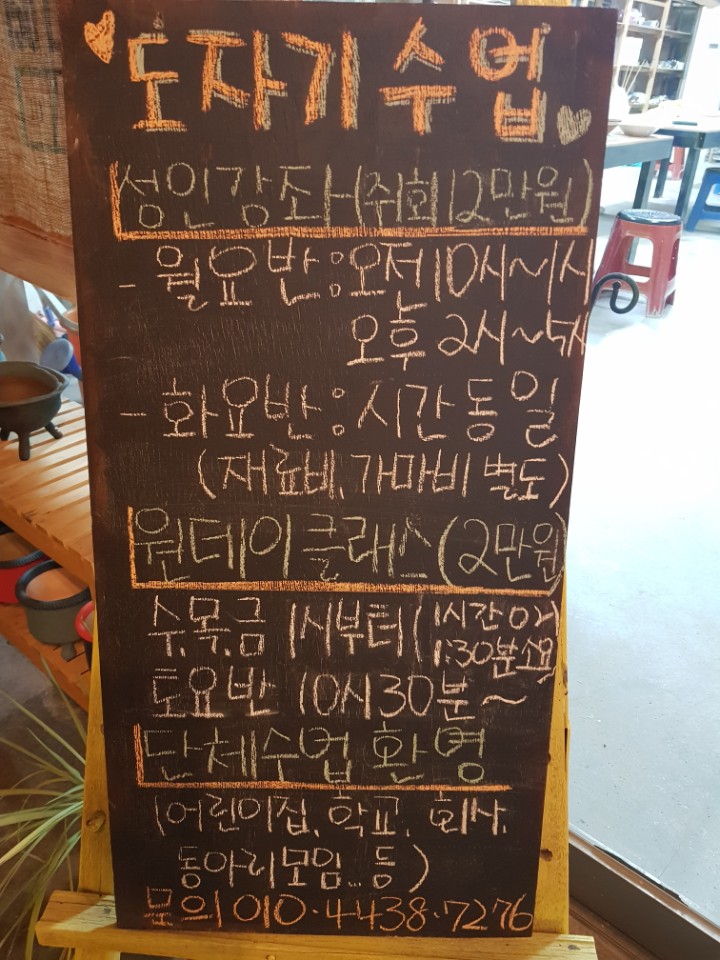 도자기수업
성인강좌(주1회 12만원)
- 월요반:오전10시~1시
오후 2시~5시
- 화요반:시간동일
(재료비, 가마비 별도)
원데이클래스(2만원)
수.목.금 1시부터(1시간에서
1:30분소요)
토요반 10시30분~
단체수업 환영
(어린이집, 학교, 회사,
동아리모임... 등)
문의 010·4438·7276